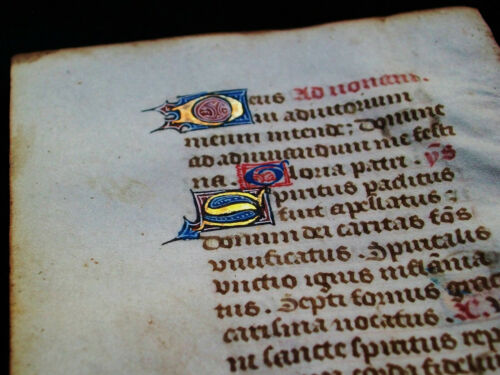 Deus Ad nonam.
in adiutorium
meum intende: Domine
ad adiuvandum me festi
na. Gloria patri. ys
Spiritus paclitus
fuit apellatus:
Donum dei caritas fōs
vivificatus. Spiritalis
vnctio ignis
tus. Septiformis gra
carisma vocatus.
ni sancte spiritus rep
corda fidel